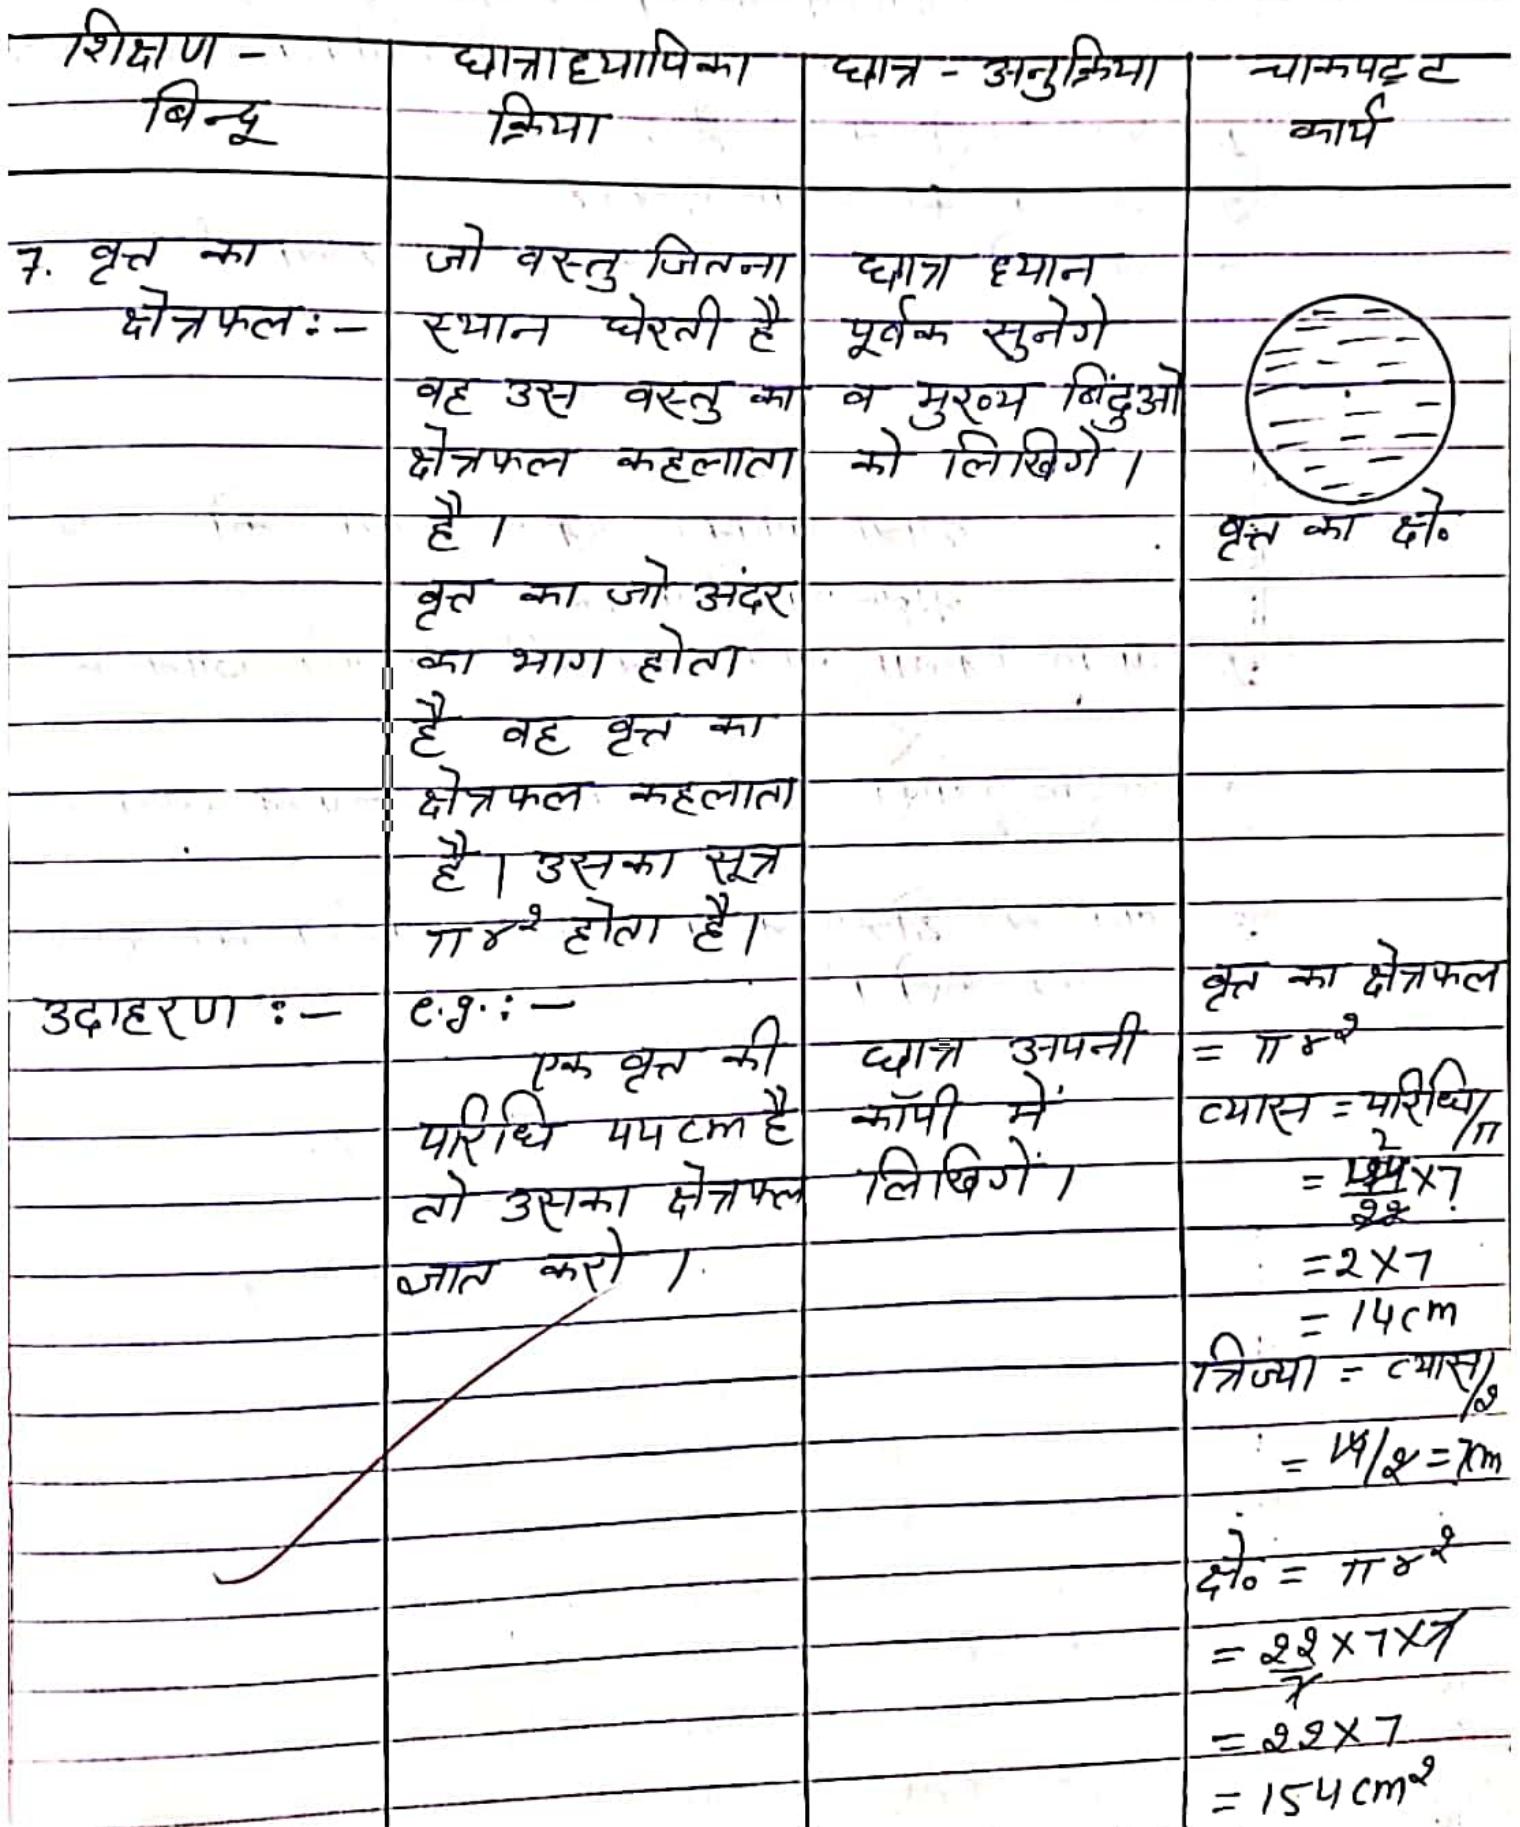 शिक्षण -
बिन्दू
छात्राध्यापिका
क्रिया
छात्र - अनुक्रिया
चाकपट्ट
कार्य
7. वृत्त का
क्षेत्रफल :-
जो वस्तु जितना
स्थान घेरती है
वह उस वस्तु का
क्षेत्रफल कहलाता
है।
वृत का जो अंदर
का भाग होता
है वह वृत्त का
क्षेत्रफल कहलाता
है। उसका सूत्र
πr² होता है।
छात्र ध्यान
पूर्वक सुनेगे
व मुख्य बिंदुओ
को लिखिगे।
वृत्त का क्षे०
उदाहरण :-
e.g. :-
एक वृत्त की
परिधि 44cm है
तो उसका क्षेत्रफल
ज्ञात करो।
छात्र अपनी
कॉपी में
लिखिगें।
वृत्त का क्षेत्रफल
= πr²
व्यास = परिधि/π
2
= 44/22 × 7
= 2×7
= 14cm
त्रिज्या = व्यास/2
= 14/2 = 7cm
क्षे० = πr²
= 22/7 × 7 × 7
= 22×7
= 154cm²